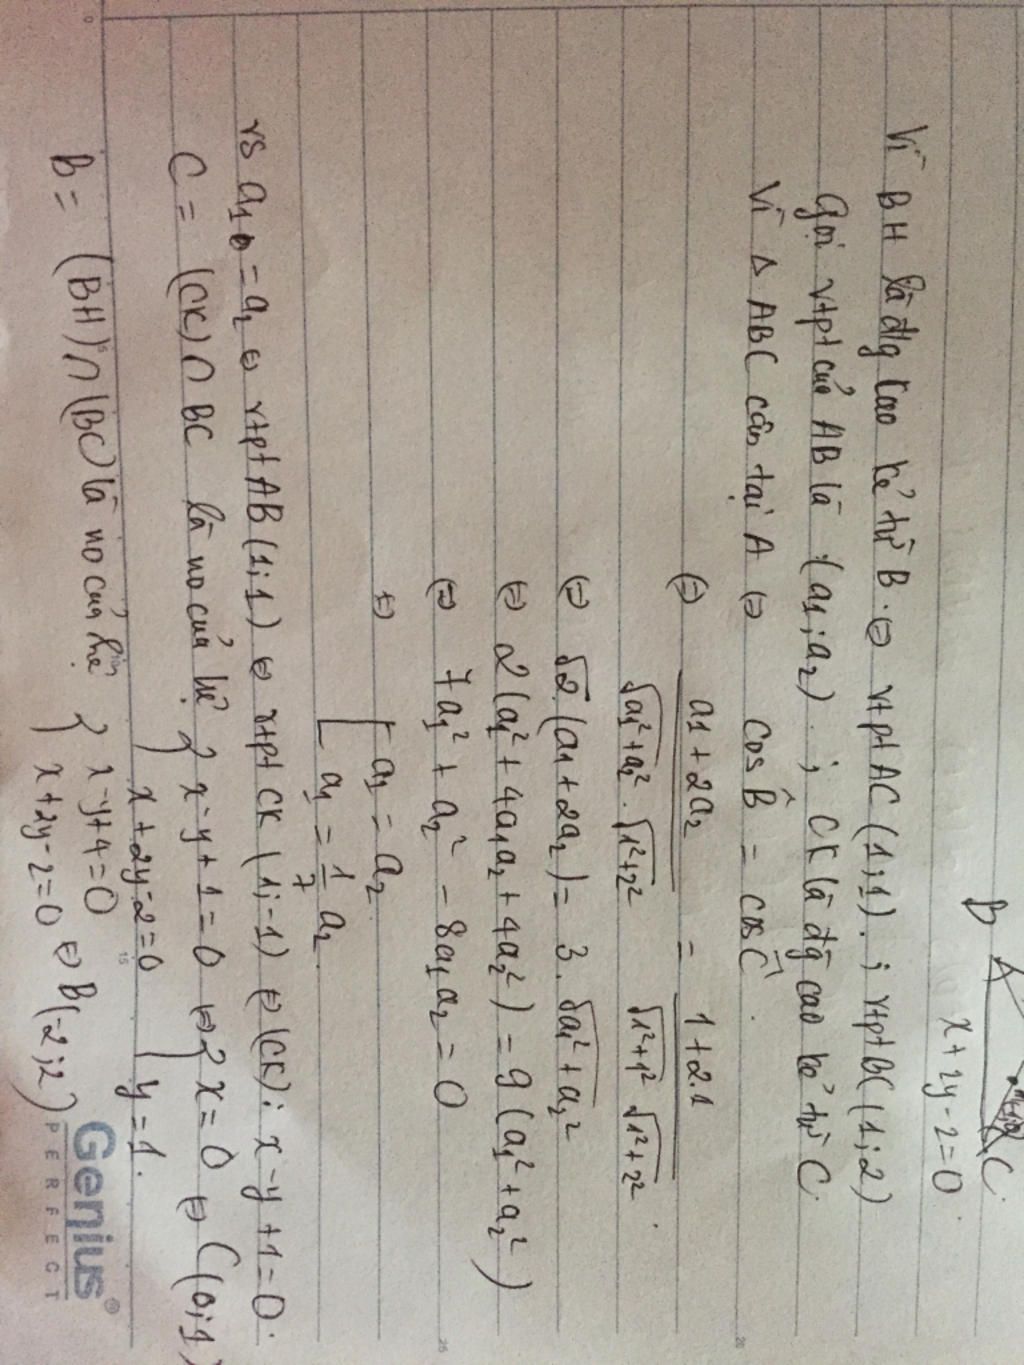 B
C.
x + 2y - 2 = 0.
Vì BH là đg cao kẻ từ B. ⇔ vtpt AC (1;1). ; vtpt BC (1;2)
Gọi vtpt của AB là (a₁; a₂). ; CK là đg cao kẻ từ C.
Vì Δ ABC cân tại A ⇔ cos B̂ = cos Ĉ.
⇔ (a₁ + 2a₂)/(√(a₁² + a₂²) . √(1² + 2²)) = (1 + 2.1)/(√(1² + 1²) √(1² + 2²)).
⇔ √2 (a₁ + 2a₂) = 3. √(a₁² + a₂²)
⇔ 2 (a₁² + 4a₁a₂ + 4a₂²) = 9 (a₁² + a₂²)
⇔ 7a₁² + a₂² - 8a₁a₂ = 0
⇔ [ a₁ = a₂
a₁ = 1/7 a₂.
vs a₁ = a₂ ⇔ vtpt AB (1;1) ⇔ vtpt CK (1;-1) ⇔ (CK): x - y + 1 = 0.
C = (CK) ∩ BC là no của hệ { x - y + 1 = 0 ⇔ { x = 0 ⇔ C(0;1)
x + 2y - 2 = 0 y = 1.
B = (BH) ∩ (BC) là no của hệ { x - y + 4 = 0
x + 2y - 2 = 0 ⇔ B(-2;2)
Genius®
PERFECT
15
20
25